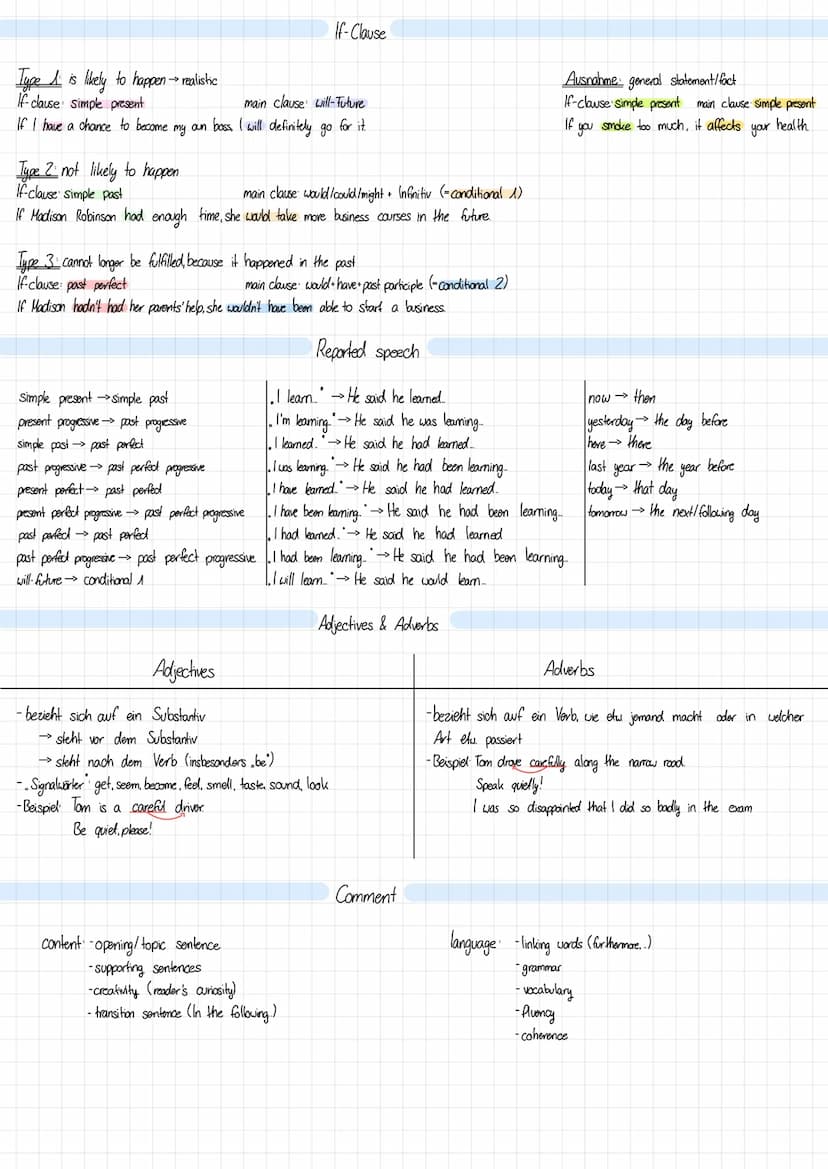 If-Clause
Type 1: is likely to happen → realistic
If-clause: simple present main clause: will-future
If I have a chance to become my own boss, I will definitely go for it.
Ausnahme: general statement/fact
If-clause: simple present main clause: simple present
If you smoke too much, it affects your health.
Type 2: not likely to happen
If-clause: simple past main clause: would/could/might + Infinitiv (= conditional 1)
If Madison Robinson had enough time, she would take more business courses in the future.
Type 3: cannot longer be fulfilled, because it happened in the past
If-clause: past perfect main clause: would + have + past participle (= conditional 2)
If Madison hadn't had her parents' help, she wouldn't have been able to start a business.
Reported speech
simple present → simple past
present progressive → past progressive
simple past → past perfect
past progressive → past perfect progressive
present perfect → past perfect
present perfect progressive → past perfect progressive
past perfect → past perfect
past perfect progressive → past perfect progressive
will-future → conditional 1
„I learn..“ → He said he learned..
„I'm learning.“ → He said he was learning..
„I learned..“ → He said he had learned..
„I was learning.“ → He said he had been learning..
„I have learned.“ → He said he had learned.
„I have been learning.“ → He said he had been learning..
„I had learned..“ → He said he had learned
„I had been learning..“ → He said he had been learning..
„I will learn..“ → He said he would learn..
now → then
yesterday → the day before
here → there
last year → the year before
today → that day
tomorrow → the next/following day
Adjectives & Adverbs
Adjectives
- bezieht sich auf ein Substantiv
→ steht vor dem Substantiv
→ steht nach dem Verb (insbesonders „be“)
- „Signalwörter“ get, seem, become, feel, smell, taste, sound, look
- Beispiel: Tom is a careful driver.
Be quiet, please!
Adverbs
- bezieht sich auf ein Verb, wie etw jemand macht oder in welcher
Art etw. passiert
- Beispiel: Tom drove carefully along the narrow road.
Speak quietly!
I was so disappointed that I did so badly in the exam
Comment
content: - opening/topic sentence
- supporting sentences
- creativity (reader's curiosity)
- transition sentence (In the following..)
language: - linking words (furthermore..)
- grammar
- vocabulary
- fluency
- coherence